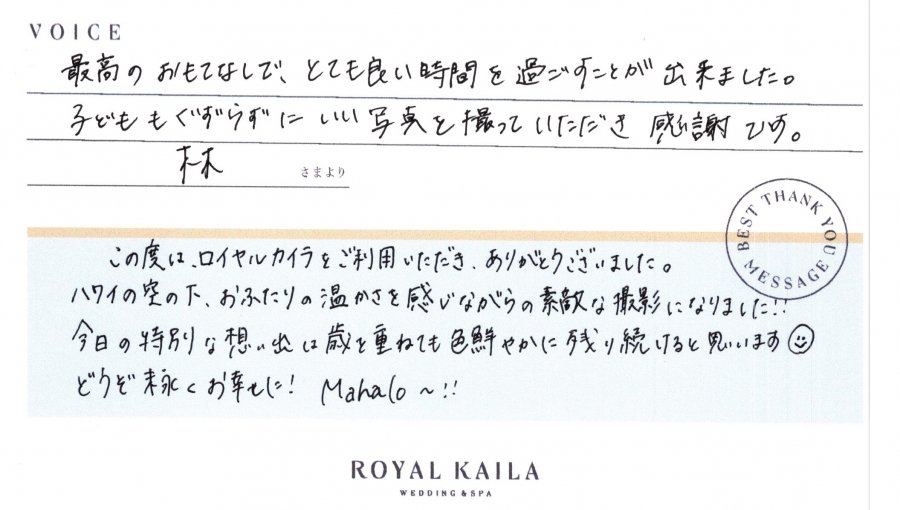 VOICE
最高のおもてなしで、とても良い時間を過ごすことが出来ました。
子どももぐずらずにいい写真を撮っていただき感謝です。
林 さまより
BEST THANK YOU MESSAGE
この度は、ロイヤルカイラをご利用いただき、ありがとうございました。
ハワイの空の下、おふたりの温かさを感じながらの素敵な撮影になりました!!
今日の特別な想い出は歳を重ねても色鮮やかに残り続けると思います
どうぞ末永くお幸せに! Mahalo~!!
ROYAL KAILA
WEDDING & SPA